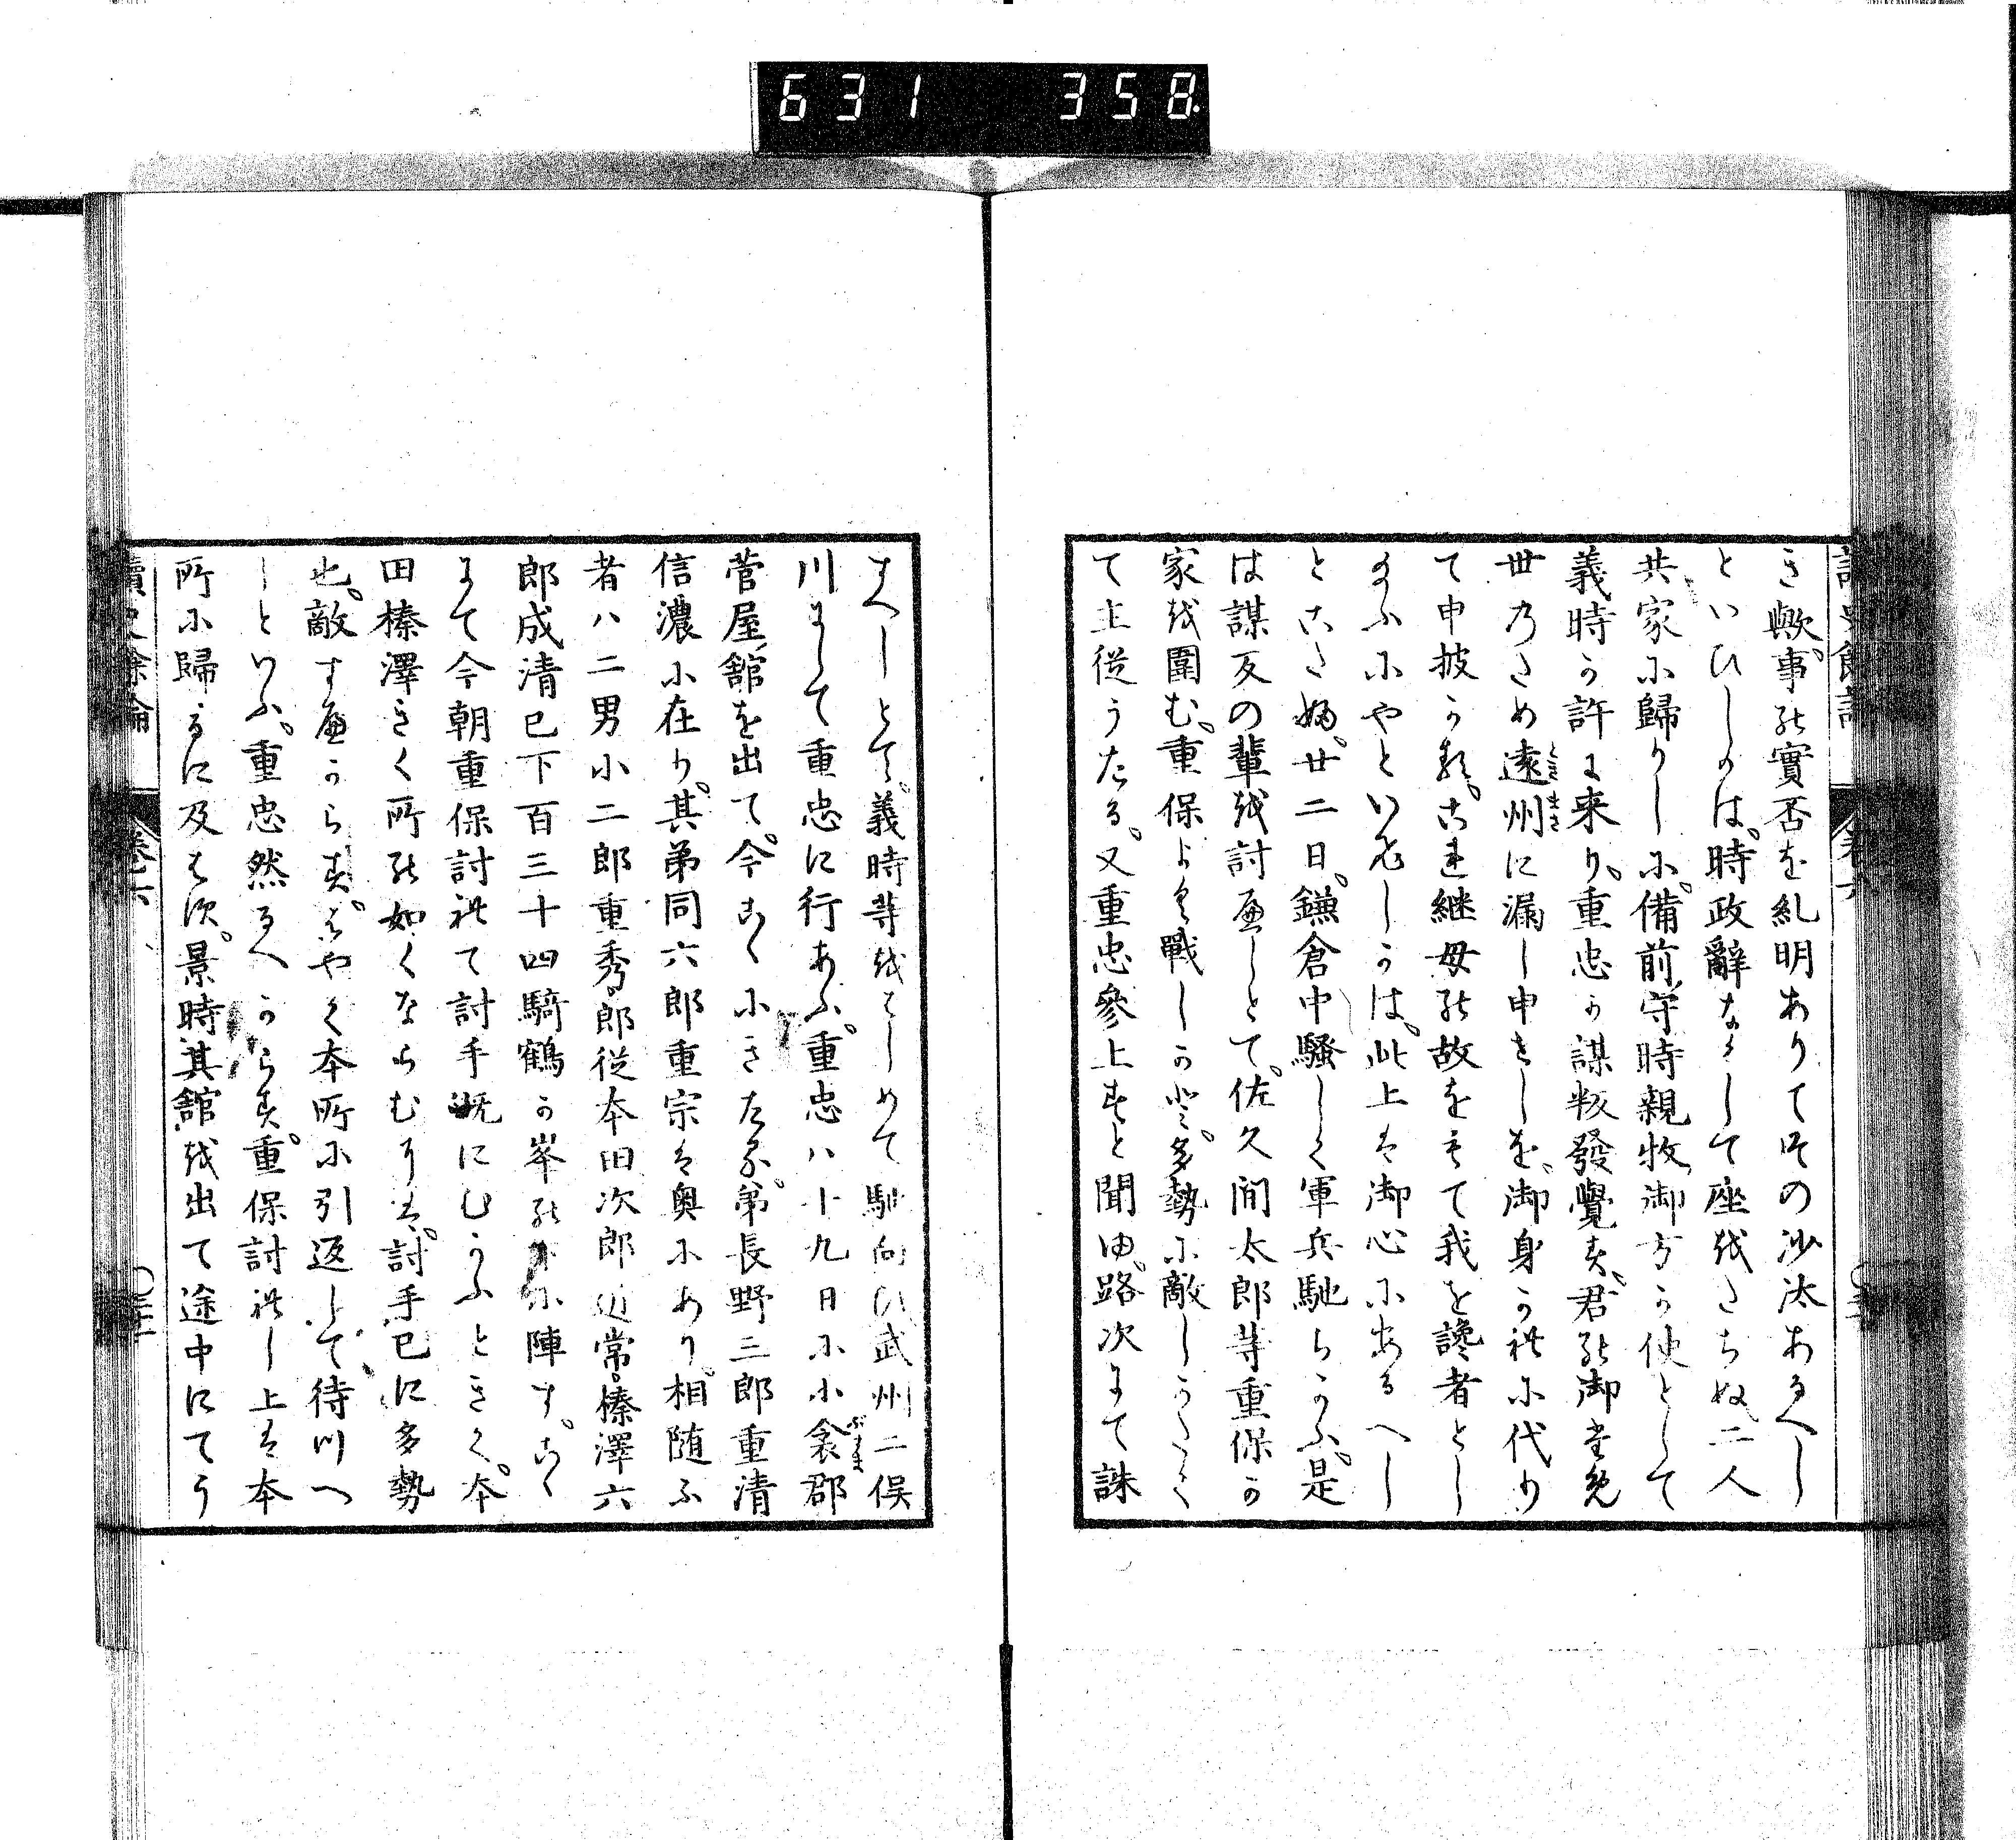 631 358
き歟。事の實否を糺明ありてその沙汰あるへし
といひしかは。時政辭なくして座をたちぬ二人
共家に歸りしに。備前守時親牧御方の使として
義時か許に来り。重忠か謀叛發覺す。君の御爲
世乃ため遠州に漏し申せしを。御身かれに代り
て申披かる。これ継母の故をもて我を讒者とし
給ふにやといひしかは。此上は御心にあるへし
とこたふ。廿二日。鎌倉中騒しく軍兵馳ちかふ。是
は謀反の輩を討へしとて。佐久間太郎等重保か
家を圍む。重保よく戰しかと。多勢に敵しかたく
て主従うたる。又重忠參上すと聞ゆ。路次にて誅
すへしとて。義時等をはしめて馳向ひ武州二俣
川にして重忠に行あふ。重忠ハ十九日に小衾郡
ぶすま
菅屋舘を出て。今こゝにきたる。弟長野三郎重清
信濃に在り。其弟同六郎重宗は奥にあり。相随ふ
者ハ二男小二郎重秀。郎従本田次郎近常。榛澤六
郎成清已下百三十四騎鶴か峯の に陣す。こゝ
にて今朝重保討れて討手既にむかふときく。本
田榛澤きく所の如くならむには。討手已に多勢
也。敵すへからす。はやく本所に引返して待つへ
しといふ。重忠然るへからす。重保討れし上は本
所に歸るに及はす。景時其舘を出て途中にてう
讀史餘論 卷六